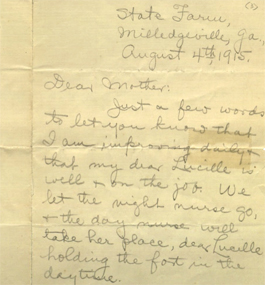 (3)
State Farm,
Milledgeville, Ga.,
August 4th, 1915.
Dear Mother:
Just a few words
to let you know that
I am improving daily &
that my dear Lucille is
well & on the job. We
let the night nurse go,
& the day nurse will
take her place, dear Lucille
holding the fort in the
daytime.